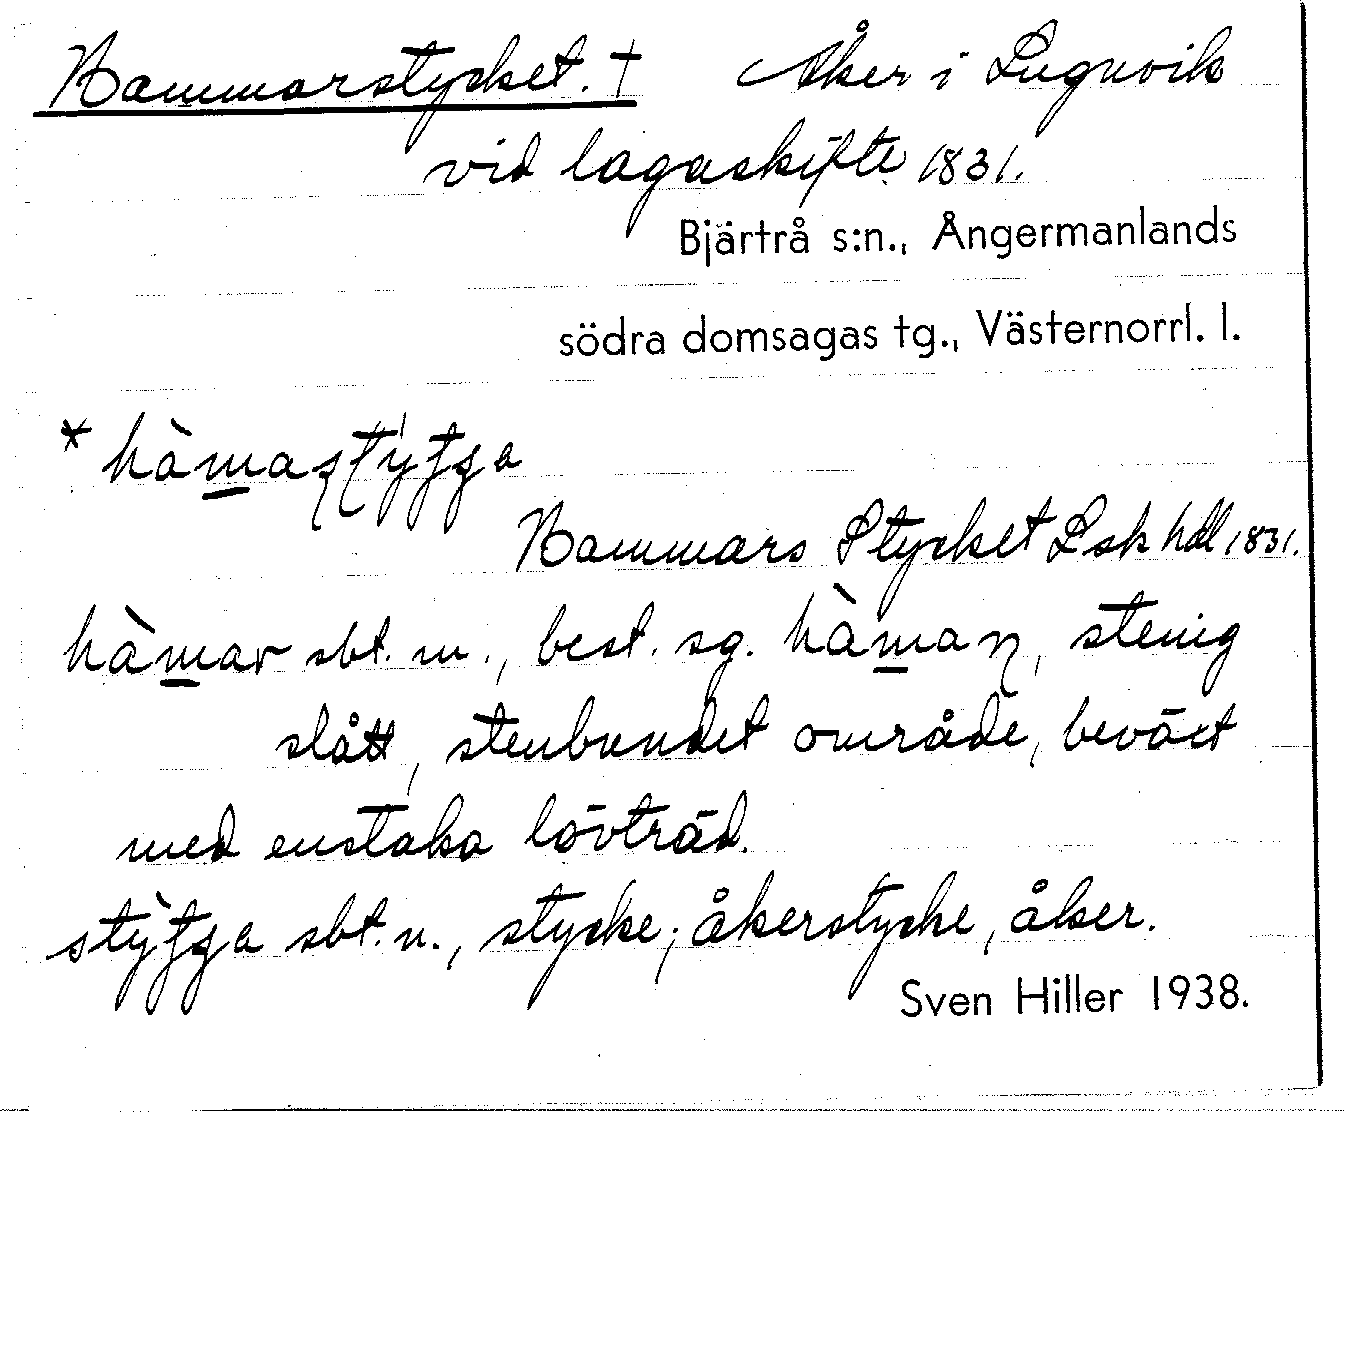 Hammarstycket. † Åker i Lugnvik
vid lagaskifte 1831.
Bjärtrå s:n., Ångermanlands
södra domsagas tg., Västernorrl. l.
Hammars Stycket Lsk hdl 1831.
hàmar sbt. m., best. sg. stenig
slått, stenbundet område, beväxt
med enstaka lövträd.
sbt. n., stycke; åkerstycke, åker.
Sven Hiller 1938.